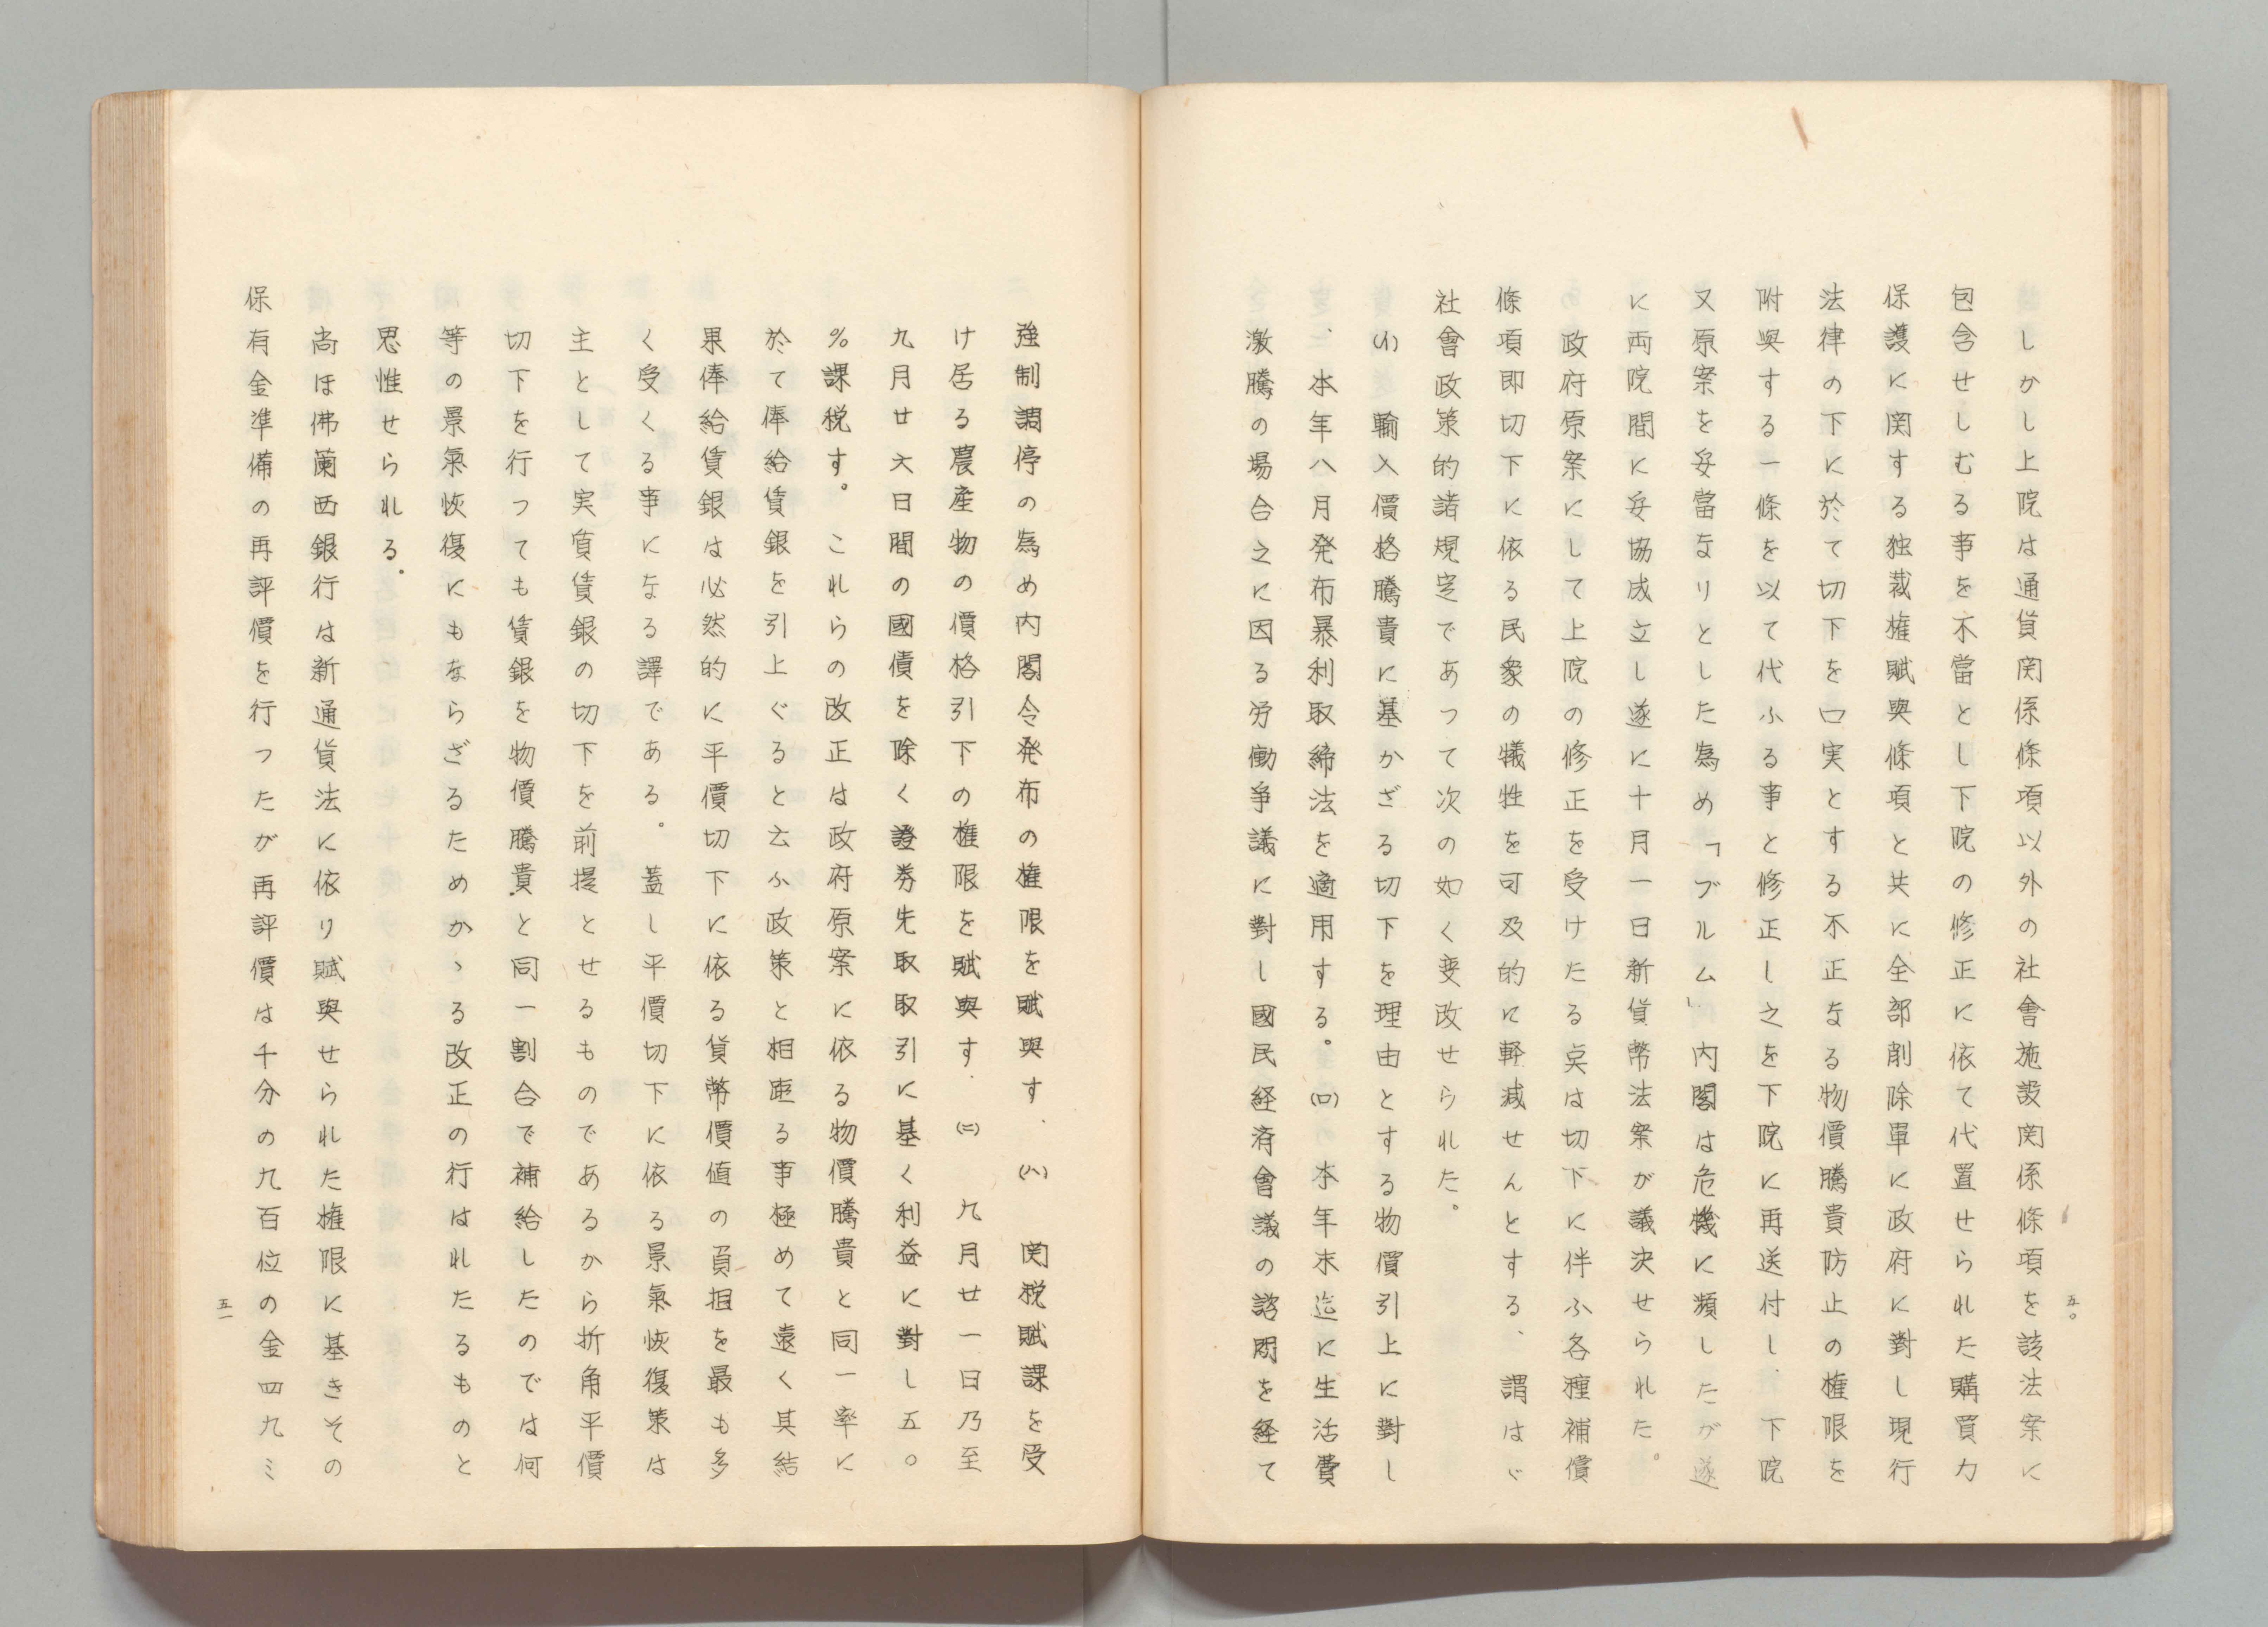 五〇
しかし上院は通貨関係條項以外の社會施設関係條項を該法案に
包含せしむる事を不當とし下院の修正に依て代置せられた購買力
保護に関する独裁権賦與條項と共に全部削除單に政府に對し現行
法律の下に於て切下を口実とする不正なる物價騰貴防止の権限を
附與する一條を以て代ふる事と修正し之を下院に再送付し、下院
又原案を妥當なりとした為め「ブルム」内閣は危機に瀕したが遂
に両院間に妥協成立し遂に十月一日新貨幣法案が議決せられた。
政府原案にして上院の修正を受けたる点は切下に伴ふ各種補償
條項即切下に依る民衆の犠牲を可及的に軽減せんとする、謂はゞ
社會政策的諸規定であつて次の如く変改せられた。
(イ) 輸入價格騰貴に基かざる切下を理由とする物價引上に對し
、本年八月発布暴利取締法を適用する。(ロ) 本年末迄に生活費
激騰の場合之に因る労働争議に對し國民経済會議の諮問を経て
強制調停の為め内閣令発布の権限を賦與す、(ハ) 関税賦課を受
け居る農産物の價格引下の権限を賦與す、(ニ) 九月廿一日乃至
九月廿六日間の國債を除く證券先取取引に基く利益に對し五〇
%課税す。これらの改正は政府原案に依る物價騰貴と同一率に
於て俸給賃銀を引上ぐると云ふ政策と相距る事極めて遠く其結
果俸給賃銀は必然的に平價切下に依る貨幣價値の負担を最も多
く受くる事になる譯である。蓋し平價切下に依る景氣恢復策は
主として実質賃銀の切下を前提とせるものであるから折角平價
切下を行つても賃銀を物價騰貴と同一割合で補給したのでは何
等の景氣恢復にもならざるためかゝる改正の行はれたるものと
思惟せられる。
尚ほ佛蘭西銀行は新通貨法に依り賦與せられた権限に基きその
保有金準備の再評價を行つたが再評價は千分の九百位の金四九ミ
五一